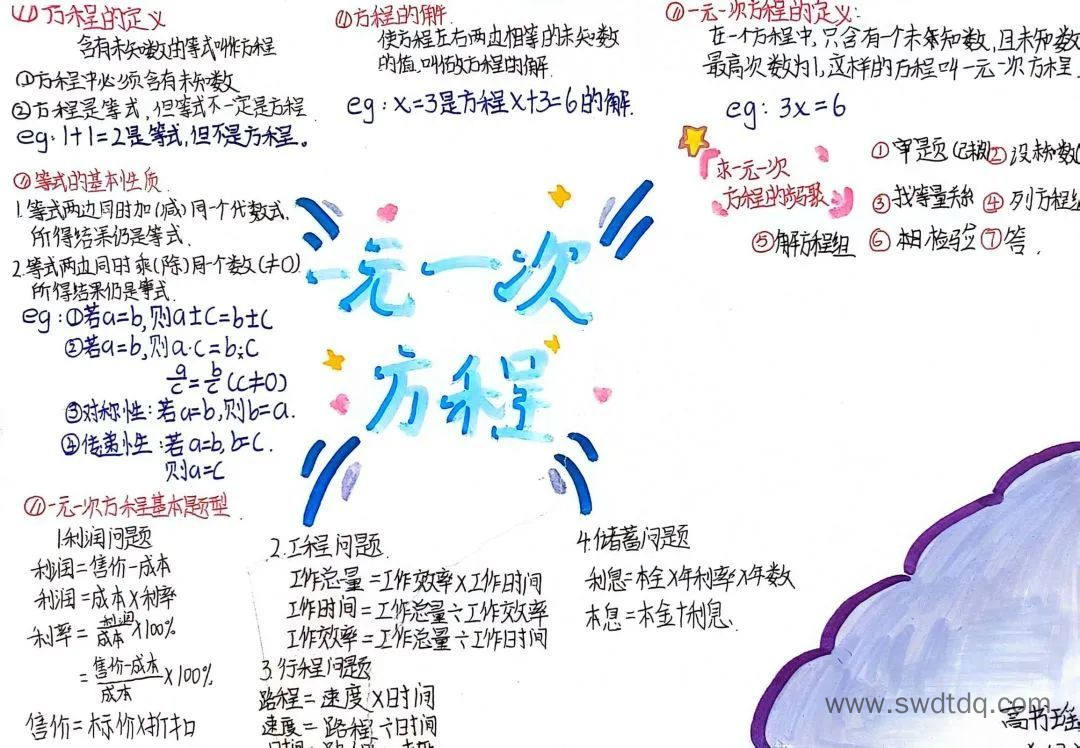 方程的定义
含有未知数的等式叫作方程
①方程中必须含有未知数
②方程是等式,但等式不一定是方程
eg:1+1=2是等式,但不是方程。
等式的基本性质
1.等式两边同时加(减)同一个代数式,
所得结果仍是等式.
2.等式两边同时乘(除)同个数(≠0)
所得结果仍是等式.
eg:①若a=b,则a±c=b±c
②若a=b,则a·c=b·c
a/c=b/c(c≠0)
③对称性:若a=b,则b=a.
④传递性:若a=b,b=c.
则a=c
方程的解
使方程左右两边相等的未知数
的值,叫做方程的解.
eg:x=3是方程x+3=6的解.
一元一次方程的定义:
在一个方程中,只含有一个未知数,且未知数
最高次数为1,这样的方程叫一元一次方程.
eg:3x=6
求一元一次
方程的步骤
①审题 ②设未知数
③找等量关系 ④列方程组
⑤解方程组 ⑥ 检验 ⑦答.
一元一次
方程
一元一次方程基本题型
1.利润问题
利润=售价-成本
利润=成本×利率
利率=利润/成本×100%
=售价-成本/成本×100%
售价=标价×折扣
2.工程问题.
工作总量=工作效率×工作时间
工作时间=工作总量÷工作效率
工作效率=工作总量÷工作时间
3.行程问题
路程=速度×时间
速度=路程÷时间
4.储蓄问题
利息=本金×年利率×年数
本息=本金+利息.
www.swdtdq.com